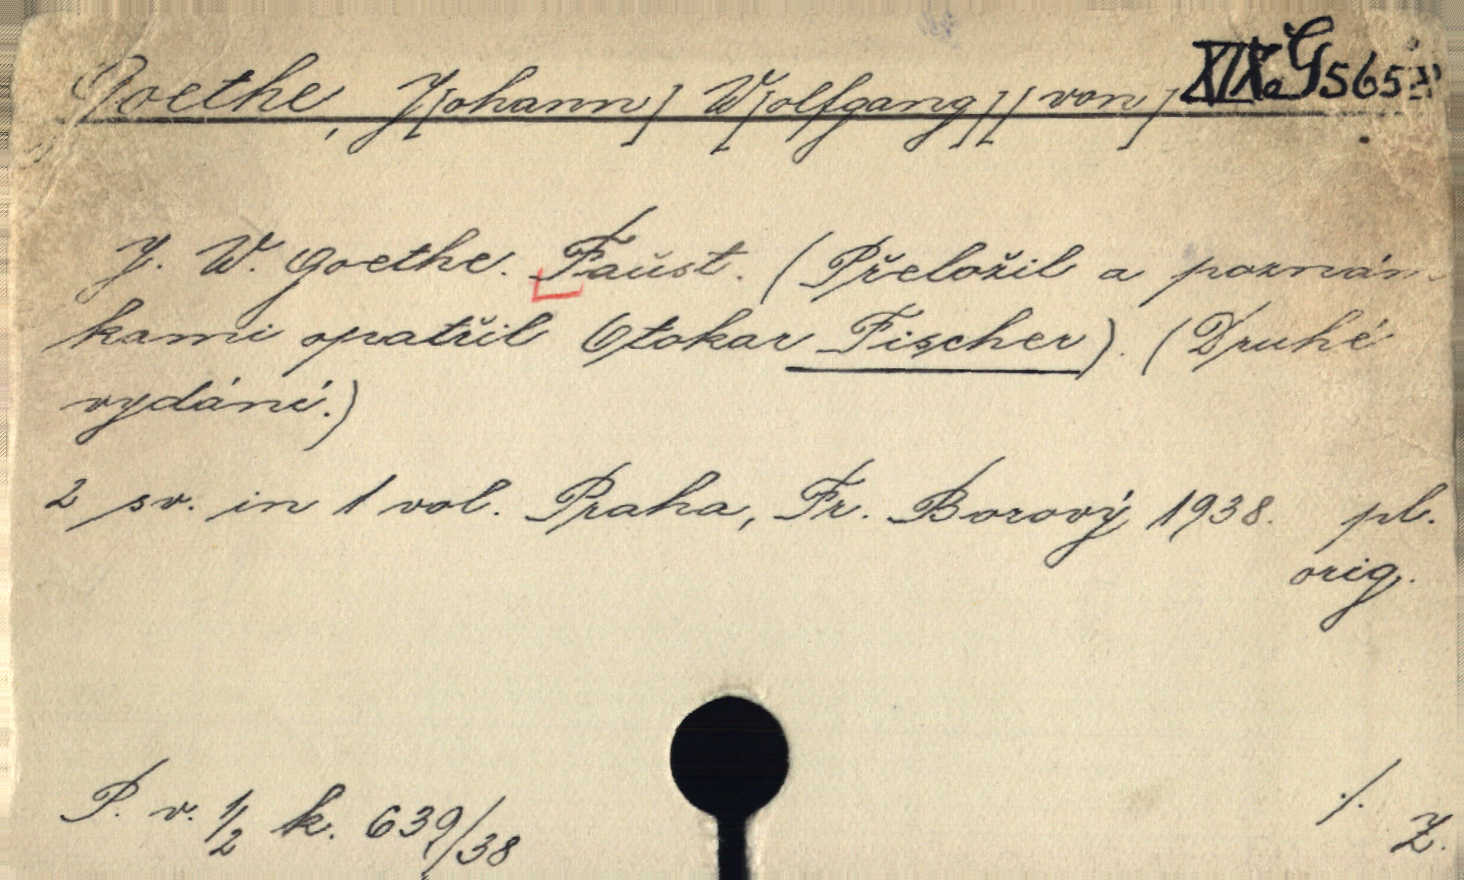 Goethe, J[ohann] W[olfgang][von] XIXa G 565
J. W. Goethe. Faust. (Přeložil a poznám-
kami opatřil Otokar Fischer). (Druhé
vydání.)
2 sv. in 1 vol. Praha, Fr. Borový 1938. pl.
orig.
P. v. 1/2 k. 639/38 ./.
Z.